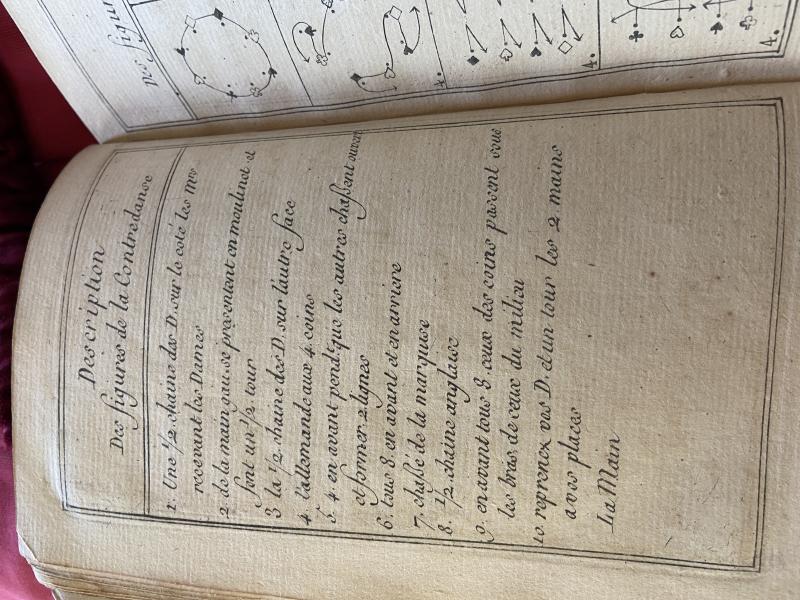 Description
Des figures de la Contredanse
1. Une 1/2 chaine des D. sur le coté les mrs
recevant les Dames
2. de la main gau. se presentent en moulinet et
font un 1/2 tour
3 la 1/2 chaine des D. sur l'autre face
4. l'allemande aux 4 coins
5. 4. en avant pendt que les autres chassent ouvert
et former 2 lignes
6. tous 8 en avant et en arriere
7. chassé de la marquise
8. 1/2 chaine anglaise
9. en avant tous 8. ceux des coins passent sous
les bras de ceux du milieu
10 reprenez vos D. et un tour les 2 mains
a vos places
La Main
Des figu
4.
4.
4.